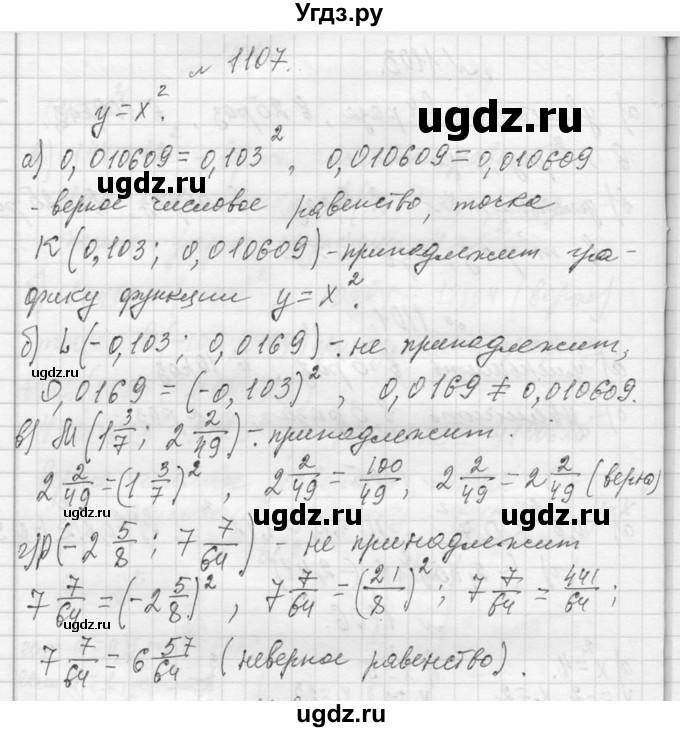 Угдз.ру
№ 1107.
y = x².
а) 0,010609 = 0,103², 0,010609 = 0,010609
- верное числовое равенство, точка
K (0,103; 0,010609) - принадлежит гра-
фику функции y = x².
б) L (-0,103; 0,0169) - не принадлежит;
0,0169 = (-0,103)², 0,0169 ≠ 0,010609.
в) M (1 3/7; 2 2/49) - принадлежит.
2 2/49 = (1 3/7)², 2 2/49 = 100/49, 2 2/49 = 2 2/49 (верно)
г) P (-2 5/8; 7 7/64) не принадлежит
7 7/64 = (-2 5/8)², 7 7/64 = (21/8)²; 7 7/64 = 441/64;
7 7/64 = 6 57/64 (неверное равенство).
ugdz.ru
ugdz.ru
ugdz.ru
ugdz.ru
ugdz.ru
ugdz.ru
ugdz.ru
ugdz.ru
ugdz.ru
ugdz.ru
ugdz.ru
ugdz.ru